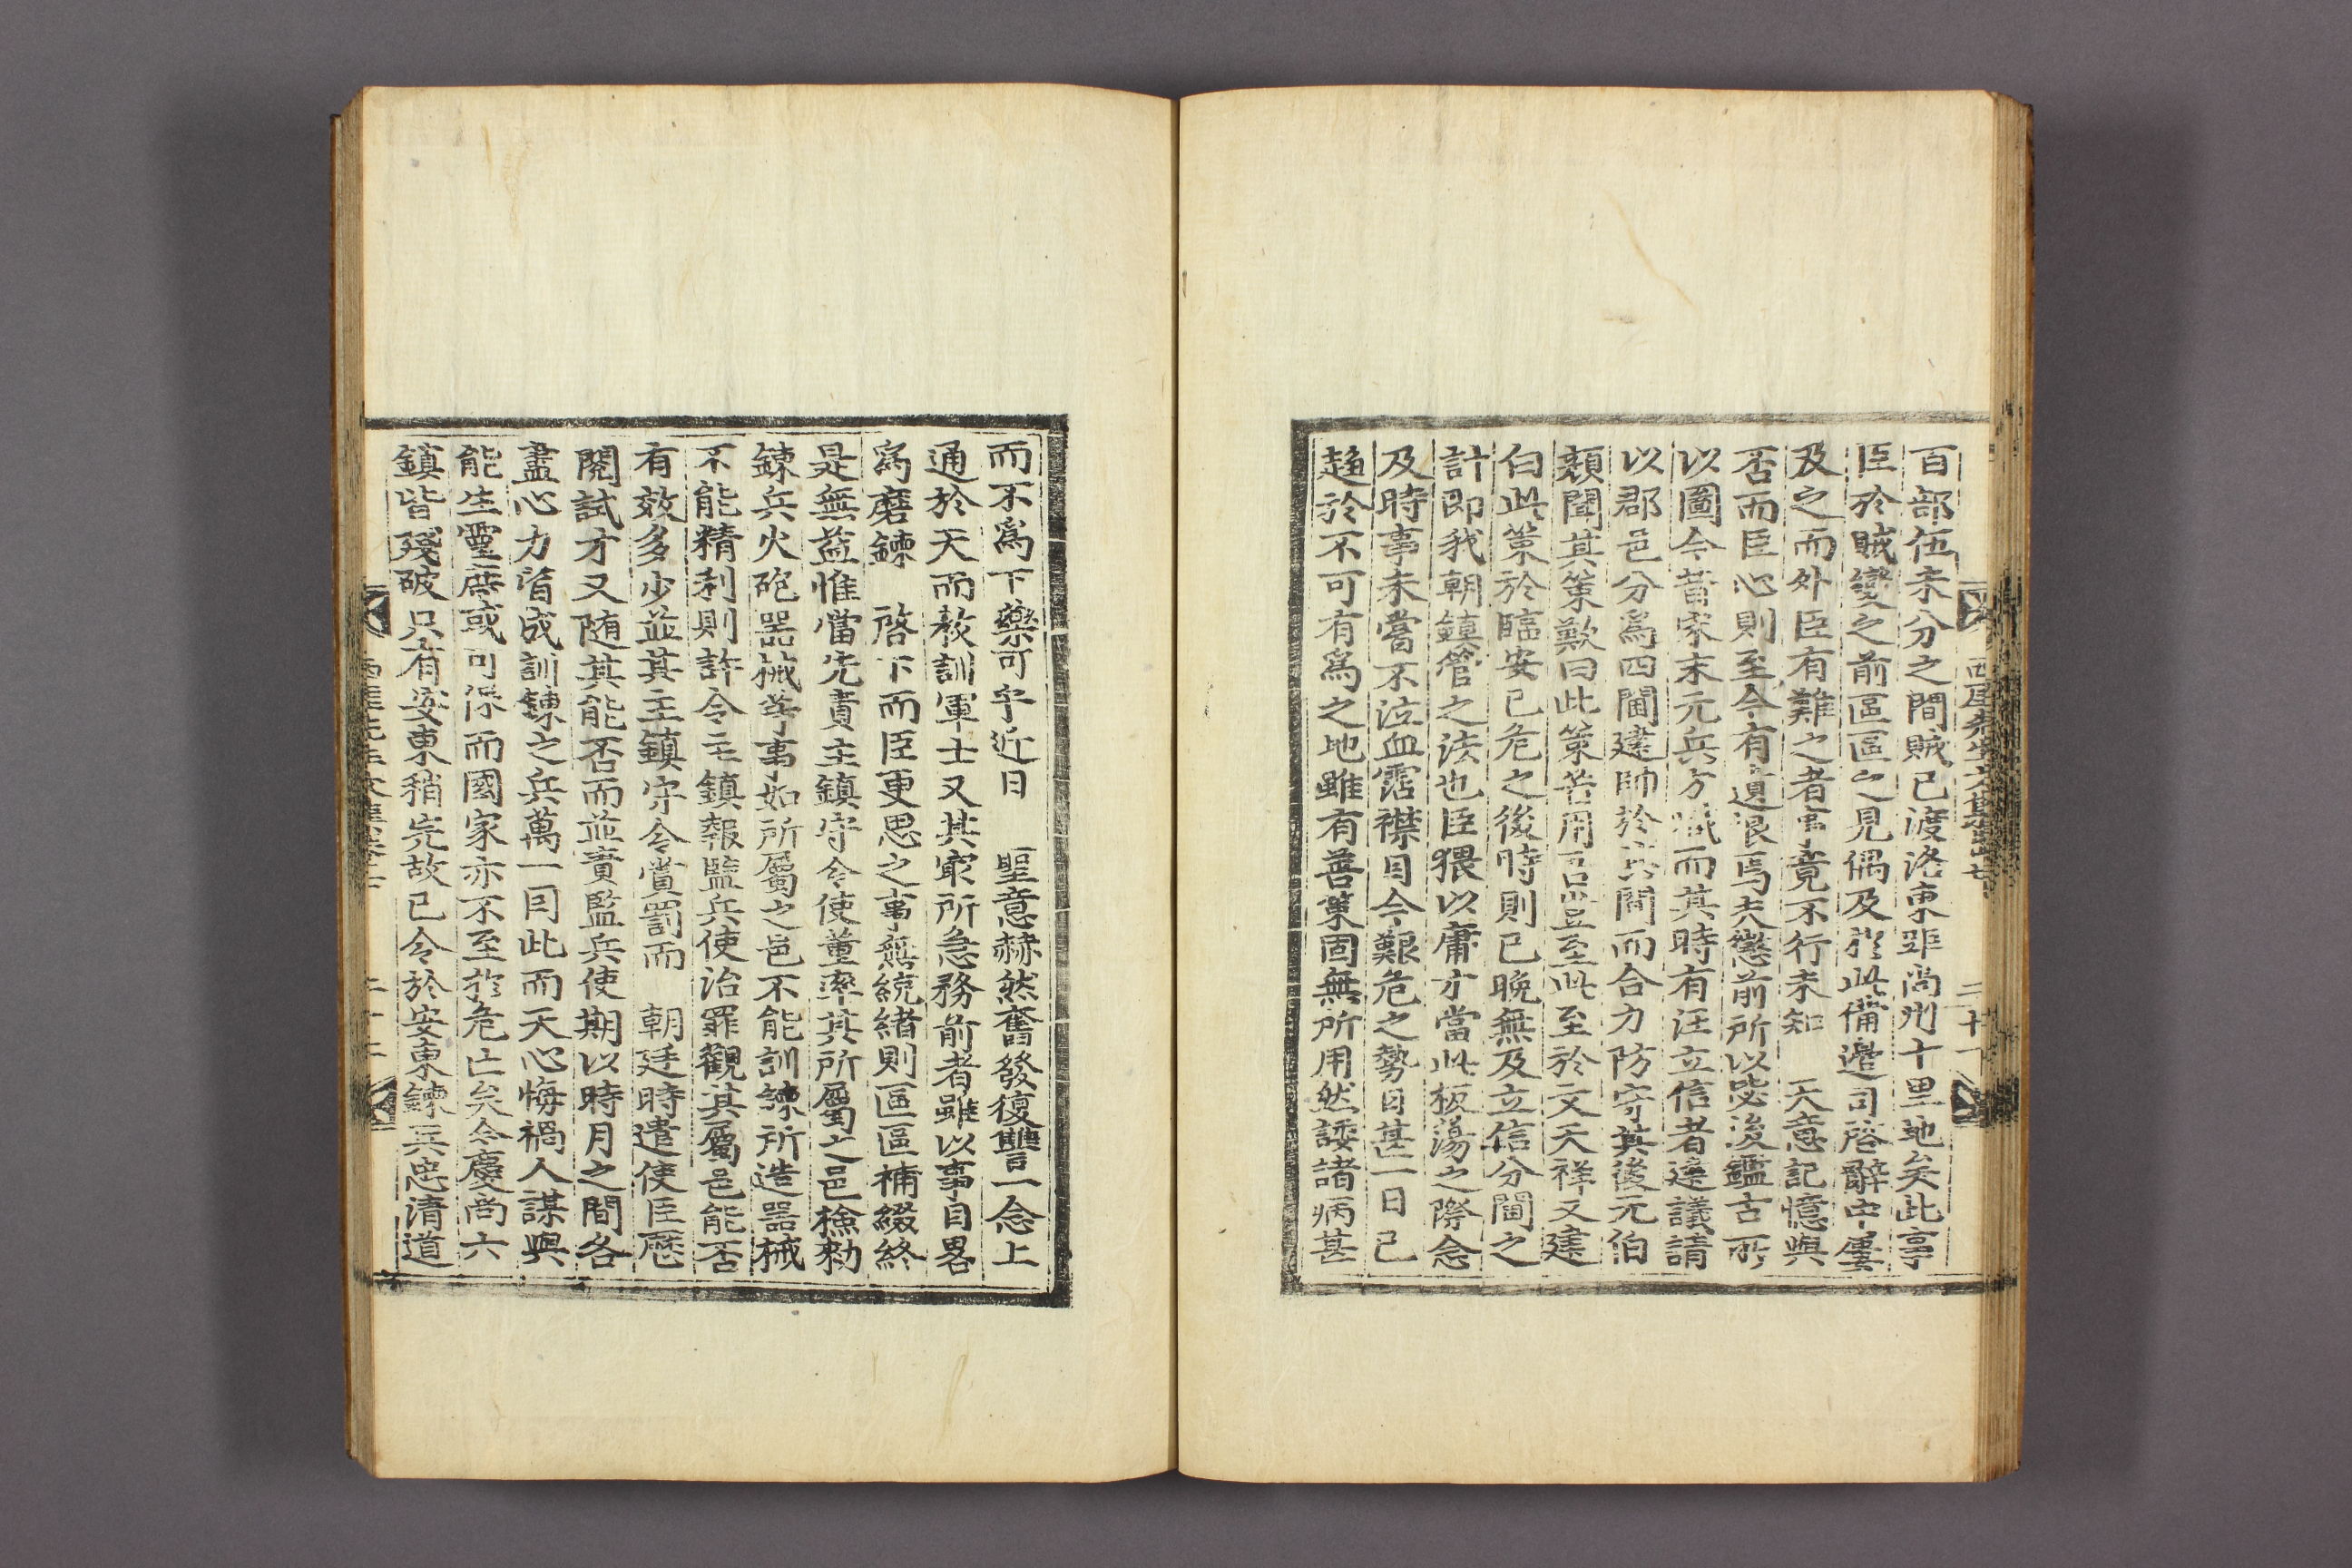 百部伍未分之間賊已渡洛東距尙州十里地矣此事
臣於賊變之前區區之見偶及於此備邊司啓辭中屢
及之而外臣有難之者事竟不行未知 天意記憶與
否而臣心則至今有遺恨焉夫懲前所以毖後鑑古所
以圖今昔宋末元兵方熾而其時有汪立信者建議請
以郡邑分爲四閫建帥於其間而合力防守其後元伯
顏聞其策歎曰此策若用吾豈至此至於文天祥又建
白此策於臨安已危之後時則已晚無及立信分閫之
計即我朝鎭管之法也臣猥以庸才當此板蕩之際念
及時事未嘗不泣血霑襟目今艱危之勢日甚一日已
趍於不可有爲之地雖有善策固無所用然諉諸病甚
西厓先生文集卷之七 二十一
而不爲下藥可乎近日 聖意赫然奮發復讐一念上
通於天而敎訓軍士又其㝡所急務前者雖以事目畧
爲磨鍊 啓下而臣更思之事無統緖則區區補綴終
是無益惟當先責主鎭守令使董率其所屬之邑檢勑
鍊兵火砲器械等事如所屬之邑不能訓鍊所造器械
不能精利則許令主鎭報監兵使治罪觀其屬邑能否
有效多少並其主鎭守令賞罰而 朝廷時遣使臣歷
閱試才又随其能否而並責監兵使期以時月之間各
盡心力皆成訓鍊之兵萬一因此而天心悔禍人謀與
能生靈庶或可保而國家亦不至於危亡矣今慶尙六
鎭皆殘破只有安東稍完故已令於安東鍊兵忠淸道